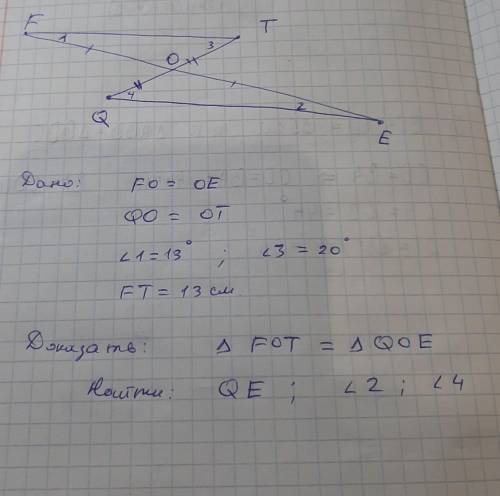 F T
1 3
O
4 2
Q E
Дано: FO = OE
QO = OT
∠1 = 13° ; ∠3 = 20°
FT = 13 см
Доказать: Δ FOT = Δ QOE
Найти: QE ; ∠2 ; ∠4